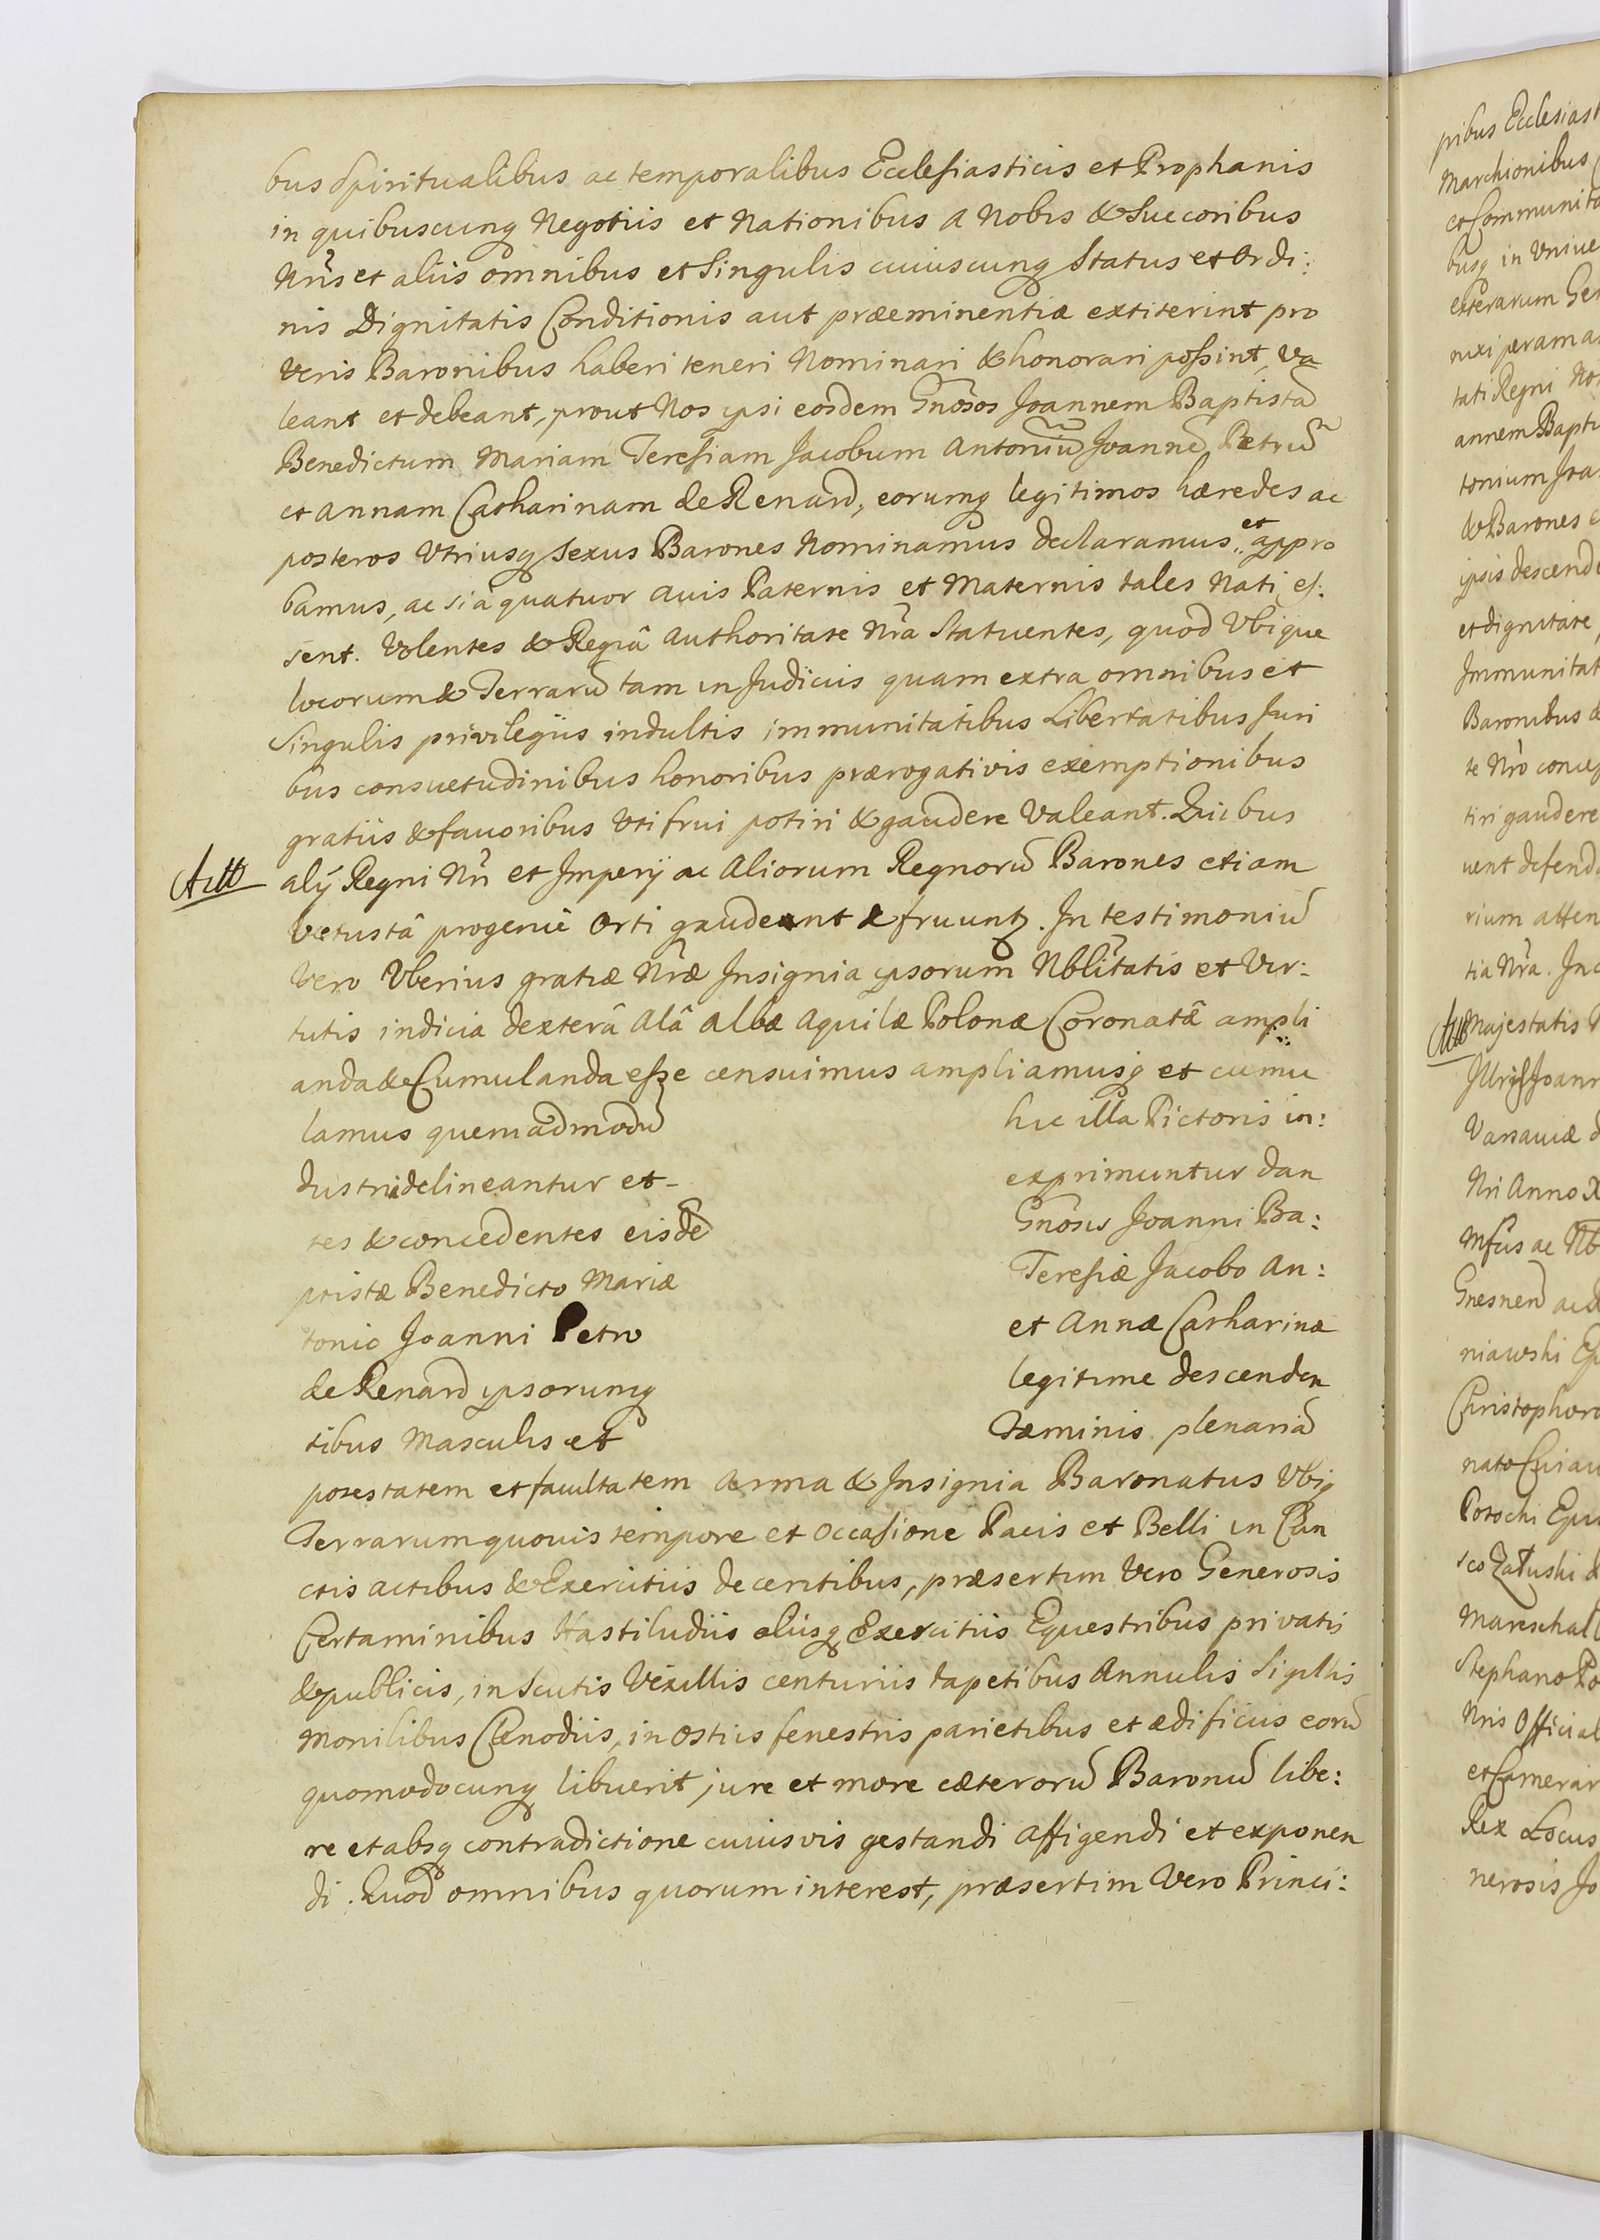 bus Spiritualibus ac temporalibus Ecclesiasticis et Prophanis
in quibuscunq Negotiis et Nationibus a Nobis & Succoribus
Nris et aliis omnibus et Singulis cuiuscunq Status et Ordi:
nis Dignitatis Conditionis aut præeminentiæ extiterint pro
Veris Baronibus haberi teneri Nominari & honorari possint, Va
leant et debeant, prout Nos ipsi eosdem Gnosos Joannem Baptistã
Benedictum Mariam Teresiam Jacobum Antoniũ Joannẽ Petrũ
et Annam Catharinam de Renard, eorumq legitimos hæredes ac
posteros Vtriusq Sexus Barones Nominamus declaramus et appro
bamus, ac si à quatuor Auis Paternis et Maternis tales Nati es:
sent. Volentes & Regiâ Authoritate Nra Statuentes, quod Vbique
locorum & Terrarũ tam in Judiciis quam extra omnibus et
Singulis privilegiis indultis immunitatibus Libertatibus Juri
bus consuetudinibus honoribus prærogativis exemptionibus
gratiis & fauoribus Vti frui potiri & gaudere Valeant. Quibus
alÿ Regni Nri et Imperÿ ac Aliorum Regnorũ Barones etiam
Vetustâ progeniè Orti gaudent & fruuntz. In testimoniũ
Vero Vberius gratiæ Nræ Insignia ipsorum Nblitatis et Vir:
tutis indicia dexterâ Alâ Albæ Aquilæ Polonæ Coronatâ ampli
anda & Cumulanda esse censuimus ampliamusq et cumu
lamus quemadmodũ hic illa Pictoris in:
dustria delineantur et- exprimuntur dan
tes & concedentes eisdẽ Gnosis Joanni Ba:
ptistæ Benedicto Mariæ Teresiæ Jacobo An:
tonio Joanni Petro et Annæ Catharinæ
de Renard ipsorumq legitime descenden
tibus Masculis et Fæminis plenariã
potestatem et facultatem Arma & Insignia Baronatus Vbiq
Terrarum quouis tempore et Occasione Pacis et Belli in Cun
ctis actibus & Exercitiis decentibus, præsertim Vero Generosis
Certaminibus Hastiludiis aliisq Exercitiis Equestribus privatis
& publicis, in Scutis Vexillis centuriis tapetibus Annulis Sigillis
Monilibus Clenodiis, in Ostiis fenestris parietibus et ædificiis eorũ
quomodocunq libuerit, jure et more cæterorũ Baronũ libe:
re et absq contradictione cuiusvis gestandi Affigendi et exponen
di. Quod omnibus quorum interest, præsertim Vero Princi:
pibus Ecclesiast
Marchionibus
et Communita
busq in Vniue
exterarum Gen
tati Regni No
annem Bapti
tonium Joa
& Barones e
ipsis descende
et dignitate,
Immunitat
Baronibus &
te Nro concep
tiri gaudere
uent defenda
rium atten
tia Nra. In c
Majestatis
Joann
Varsauiæ d
Nri Anno X
ac Nb
Gnesnen
niawski Ep
Christophoro
nato Cuiau
Potocki Epis
sco Załuski d
Mareschall
Stephano Po
Nris Official
et Camerar
Rex Locus
nerosis Jo